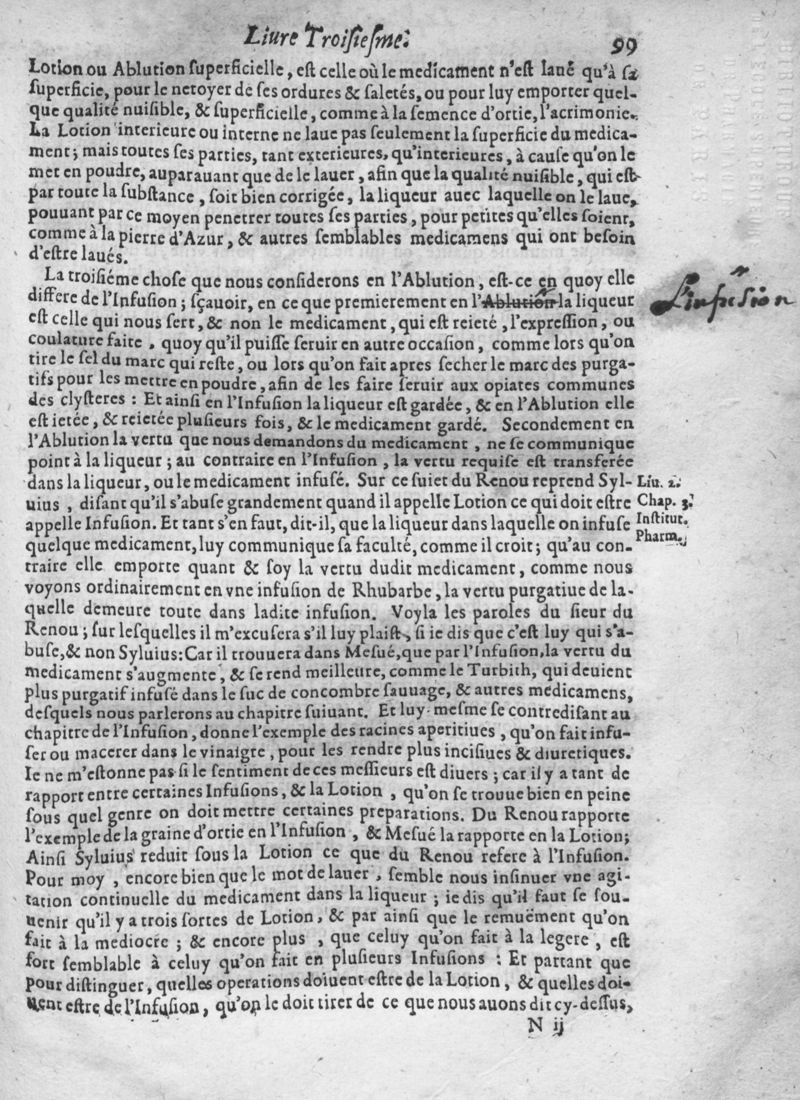 Liure Troisiesme. 99
Lotion ou Ablution superficielle, est celle où le medicament n'est laué qu'à sa
superficie, pour le netoyer de ses ordures & saletés, ou pour luy emporter quel-
que qualité nuisible, & superficielle, comme à la semence d'ortie, l'acrimonie.
La Lotion interieure ou interne ne laue pas seulement la superficie du medica-
ment; mais toutes ses parties, tant exterieures, qu'interieures, à cause qu'on le
met en poudre, auparauant que de le lauer, afin que la qualité nuisible, qui est
par toute la substance, soit bien corrigée, la liqueur auec laquelle on le laue,
pouuant par ce moyen penetrer toutes ses parties, pour petites qu'elles soient,
comme à la pierre d'Azur, & autres semblables medicamens qui ont besoin
d'estre laués.
La troisiéme chose que nous considerons en l'Ablution, est-ce en quoy elle
differe de l'Infusion; sçauoir, en ce que premierement en l'Ablution la liqueur
L'infusion
est celle qui nous sert, & non le medicament, qui est reieté, l'expression, ou
coulature faite, quoy qu'il puisse seruir en autre occasion, comme lors qu'on
tire le sel du marc qui reste, ou lors qu'on fait apres secher le marc des purga-
tifs pour les mettre en poudre, afin de les faire seruir aux opiates communes
des clysteres: Et ainsi en l'Infusion la liqueur est gardée, & en l'Ablution elle
est ietée, & reietée plusieurs fois, & le medicament gardé. Secondement en
l'Ablution la vertu que nous demandons du medicament, ne se communique
point à la liqueur; au contraire en l'Infusion, la vertu requise est transferée
dans la liqueur, ou le medicament infusé. Sur ce suiet du Renou reprend Syl-
uius, disant qu'il s'abuse grandement quand il appelle Lotion ce qui doit estre
appelle Infusion. Et tant s'en faut, dit-il, que la liqueur dans laquelle on infuse
quelque medicament, luy communique sa faculté, comme il croit; qu'au con-
Liu. 2.
Chap. 3.
Institut.
Pharm.
traire elle emporte quant & soy la vertu dudit medicament, comme nous
voyons ordinairement en vne infusion de Rhubarbe, la vertu purgatiue de la-
quelle demeure toute dans ladite infusion. Voyla les paroles du sieur du
Renou; sur lesquelles il m'excusera s'il luy plaist, si ie dis que c'est luy qui s'a-
buse, & non Syluius: Car il trouuera dans Mesué, que par l'Infusion, la vertu du
medicament s'augmente, & se rend meilleure, comme le Turbith, qui deuient
plus purgatif infusé dans le suc de concombre sauuage, & autres medicamens,
desquels nous parlerons au chapitre suiuant. Et luy-mesme se contredisant au
chapitre de l'Infusion, donne l'exemple des racines aperitiues, qu'on fait infu-
ser ou macerer dans le vinaigre, pour les rendre plus incisiues & diuretiques.
Ie ne m'estonne pas si le sentiment de ces messieurs est diuers; car il y a tant de
rapport entre certaines Infusions, & la Lotion, qu'on se trouue bien en peine
sous quel genre on doit mettre certaines preparations. Du Renou rapporte
l'exemple de la graine d'ortie en l'Infusion, & Mesué la rapporte en la Lotion;
Ainsi Syluius reduit sous la Lotion ce que du Renou refere à l'Infusion.
Pour moy, encore bien que le mot de lauer, semble nous insinuer vne agi-
tation continuelle du medicament dans la liqueur; ie dis qu'il faut se sou-
uenir qu'il y a trois sortes de Lotion, & par ainsi que le remuëment qu'on
fait à la mediocre; & encore plus, que celuy qu'on fait à la legere, est
fort semblable à celuy qu'on fait en plusieurs Infusions: Et partant que
pour distinguer, quelles operations doiuent estre de la Lotion, & quelles doi-
uent estre de l'Infusion, qu'on le doit tirer de ce que nous auons dit cy-dessus,
N ij